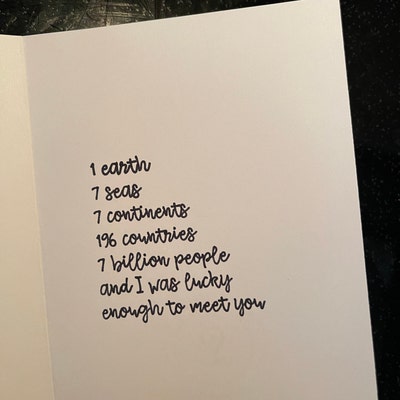 1 earth
7 seas
7 continents
196 countries
7 billion people
and I was lucky
enough to meet you